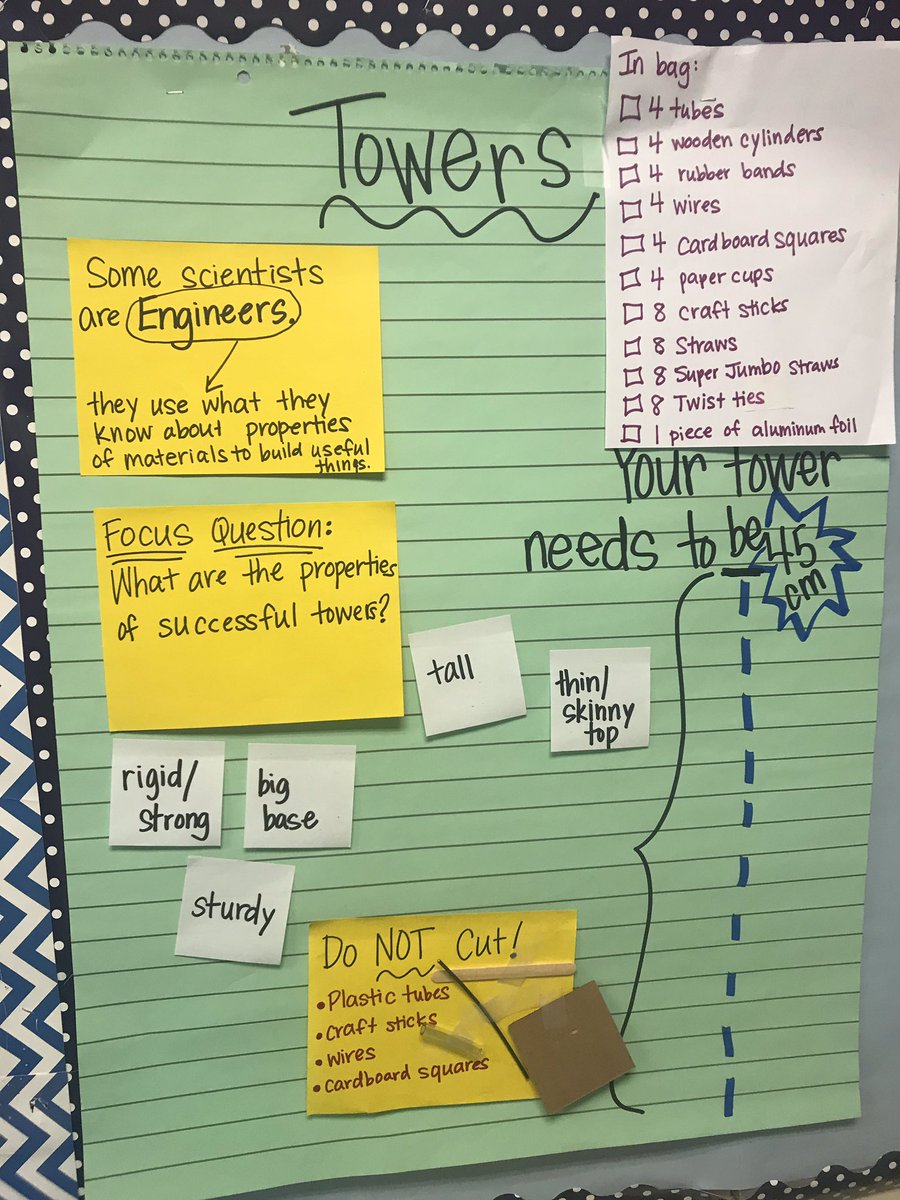 Towers
In bag:
4 tubes
4 wooden cylinders
4 rubber bands
4 wires
4 Cardboard squares
4 paper cups
8 craft sticks
8 Straws
8 Super Jumbo Straws
8 Twist ties
1 piece of aluminum foil
Some scientists
are Engineers.
they use what they
know about properties
of materials to build useful
things.
Your tower
needs to be 45
cm
Focus Question:
What are the properties
of successful towers?
tall
thin/
skinny
top
rigid/
strong
big
base
sturdy
Do NOT Cut!
• Plastic tubes
• craft sticks
• wires
• cardboard squares